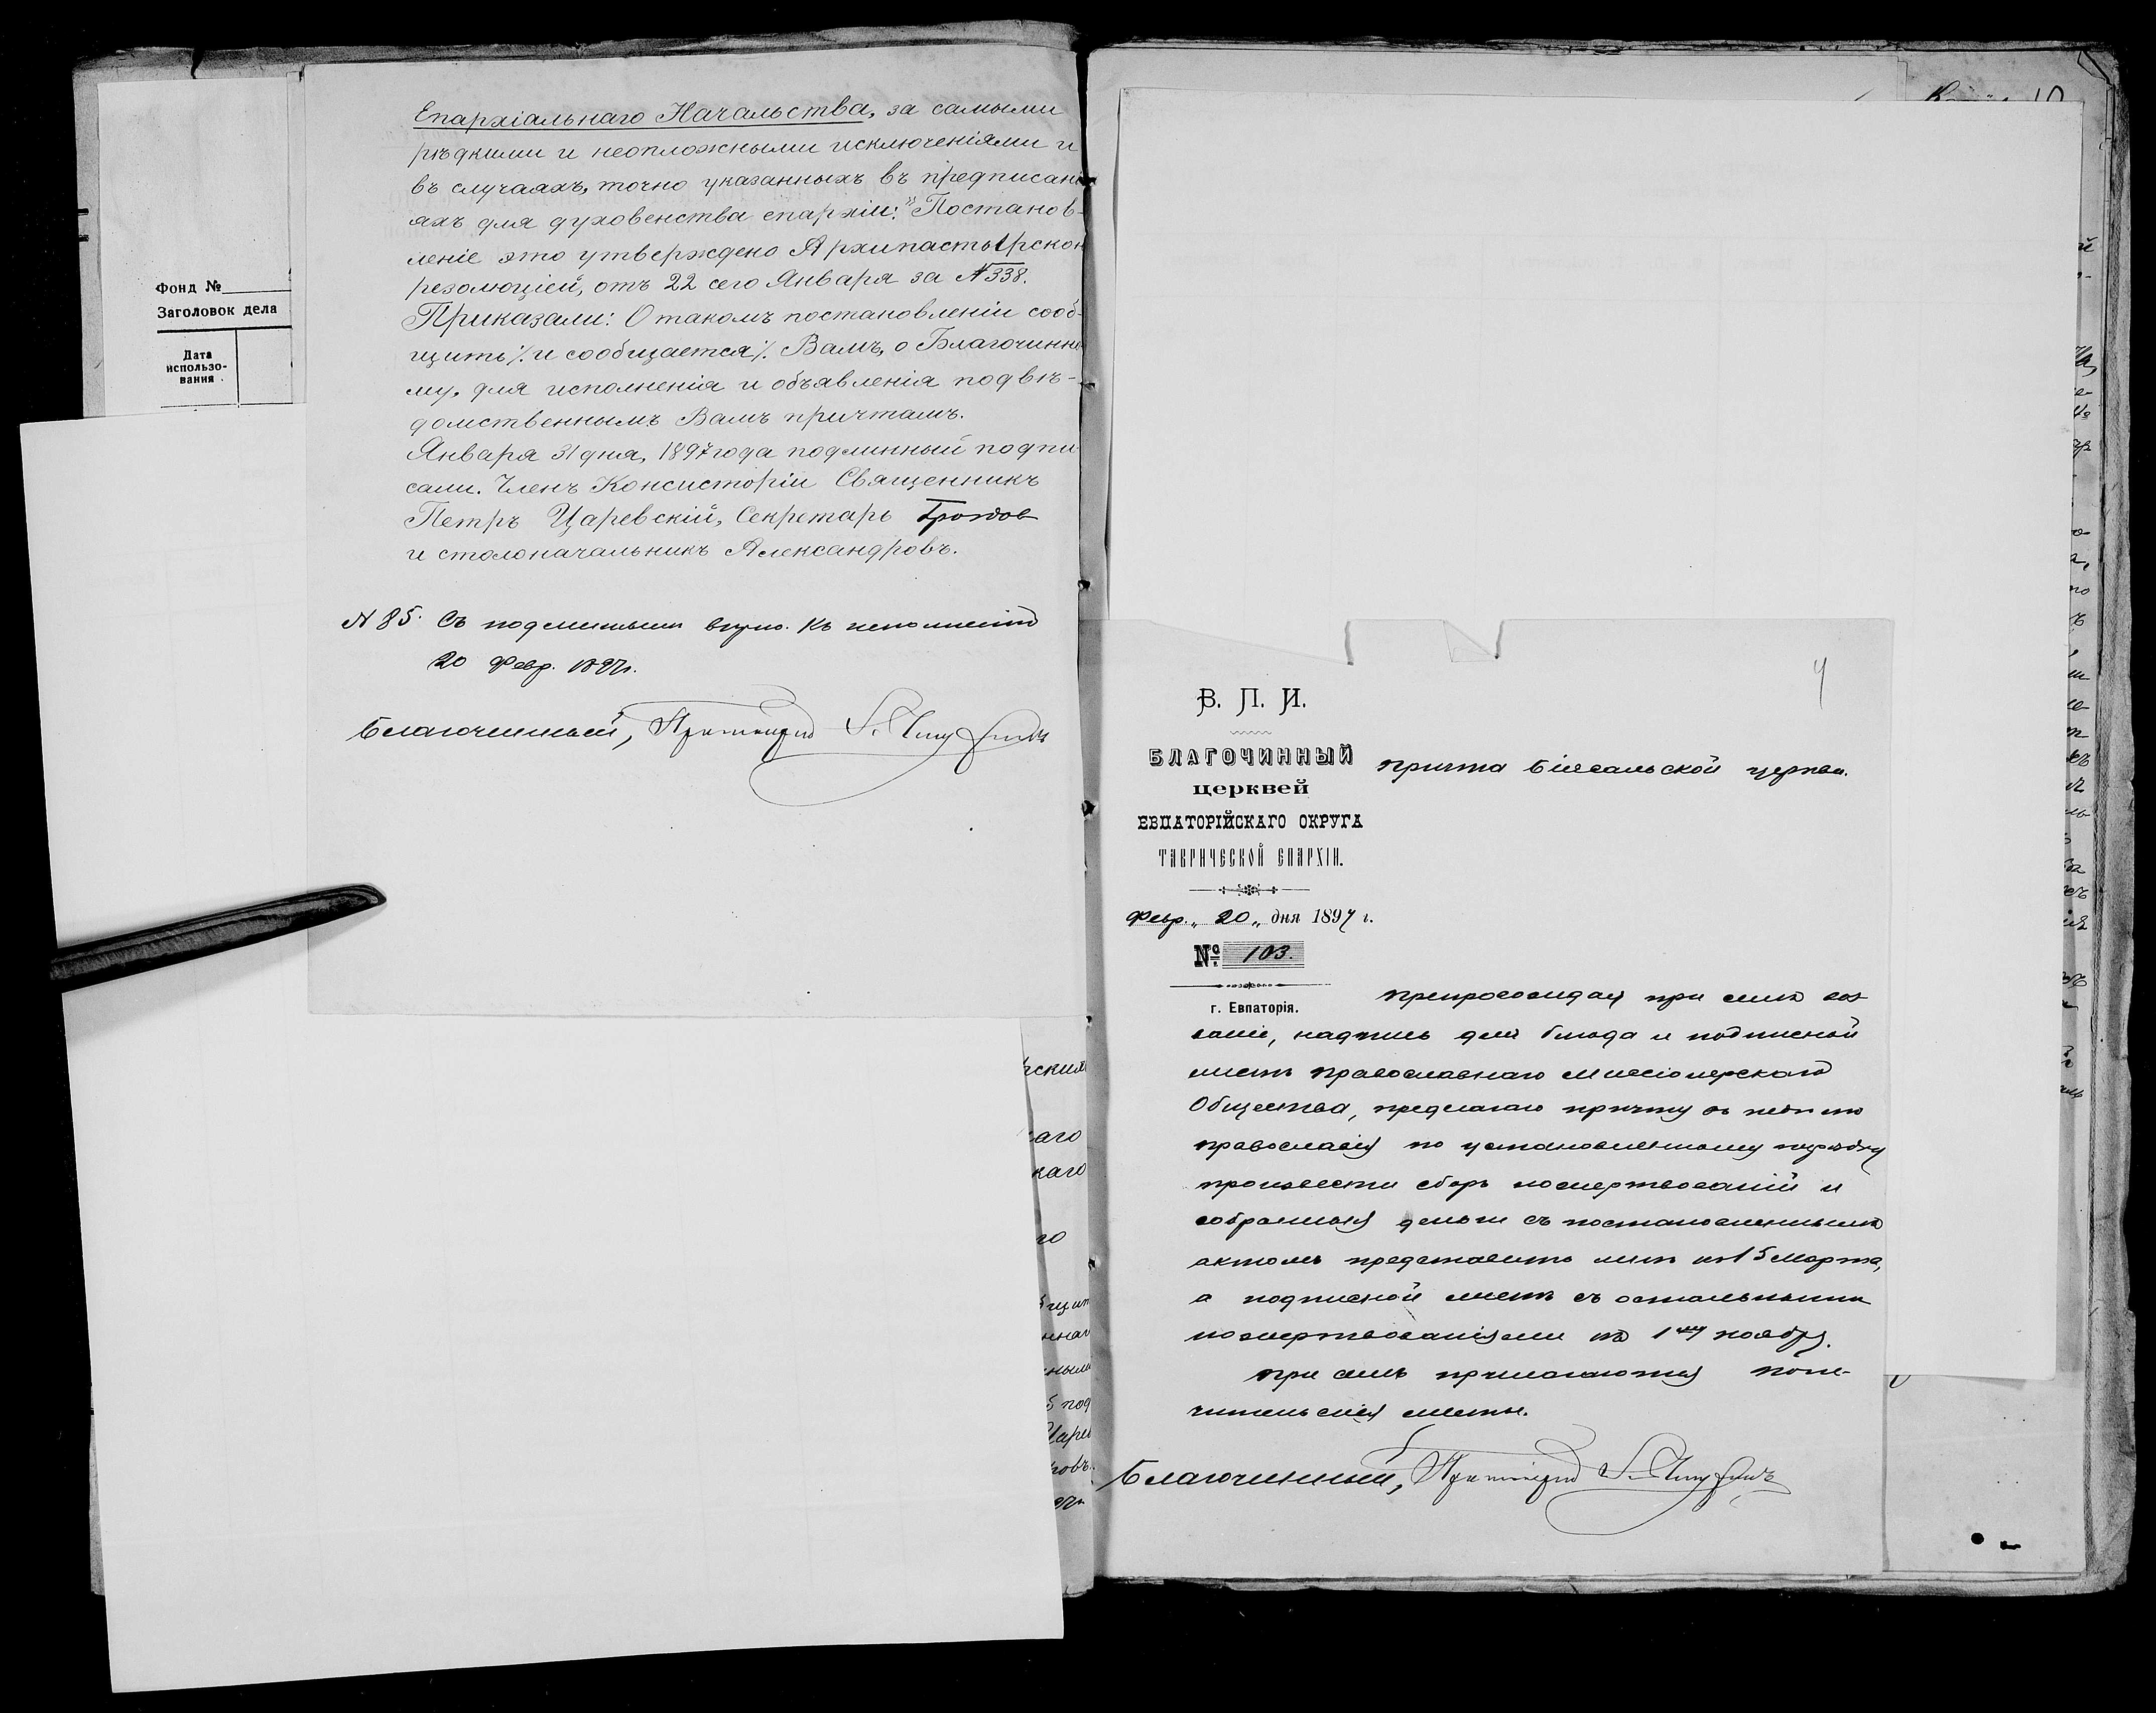 Фонд №
Заголовок дела
Дата
использо-
вания
Епархіальнаго Начальства, за самыми
рѣдкими и неопложными исключеніями и
въ случаяхъ, точно указанныхъ въ предписані
яхъ для духовенства епархіи." Постанов-
леніе это утверждено Архипастырскою
резолюціей, отъ 22 сего Января за №338.
Приказали: О такомъ постановленіи сооб-
щить ⁒ и сообщается ⁒ Вамъ, о Благочинно
му, для исполненія и объявленія подвѣ-
домственнымъ Вамъ причтамъ.
Января 31 дня, 1897 года подлинный подпи
сали. Членъ Консисторіи Священникъ
Петръ Царевскій, Секретарь
и столоначальникъ Александровъ.
№ 85. Съ подлиннымъ вѣрно. Къ исполненію
20 Февр. 1897 г.
Благочинный, Протоіерей
4
В. П. И.
БЛАГОЧИННЫЙ
церквей
ЕВПАТОРІЙСКАГО ОКРУГА
ТАВРИЧЕСКОЙ ЕПАРХІИ.
Февр. „ 20 „ дня 1897 г.
№ 103.
г. Евпаторія.
причта церкви.
Препровождая при семъ воз
званіе, надпись для блюда и подписной
листъ православнаго Миссіонерскаго
Общества, предлагаю причту въ недѣлю
православія по установленному порядку
произвести сборъ пожертвованій и
собранныя деньги съ постановленнымъ
актомъ представить мнѣ къ 15 Марта,
а подписной листъ съ остальными
пожертвованіями къ 1му ноября.
При семъ прилагаются попе-
чительскіе листы.
Благочинный, Протоіерей